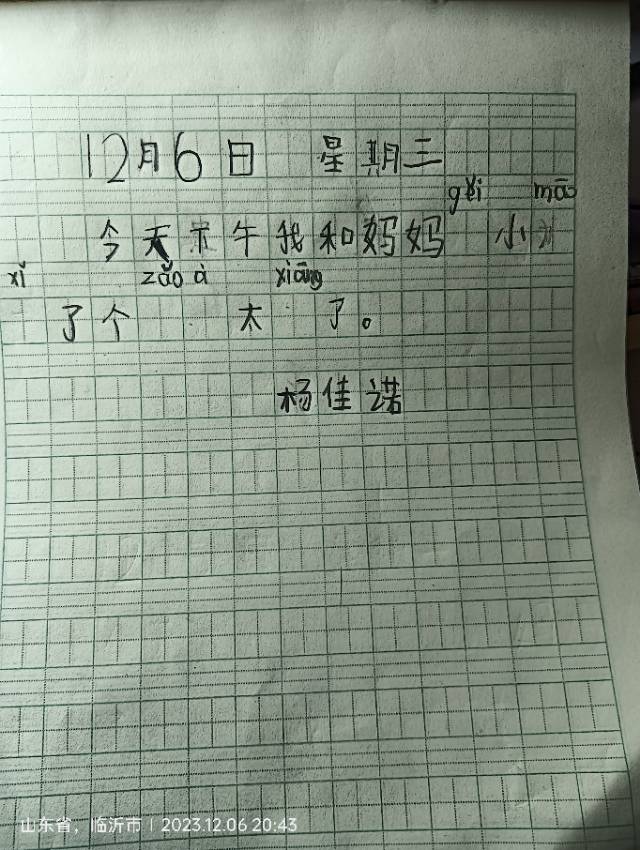 12月6日 星期三
gěi māo
今天下午我和妈妈 小
xǐ zǎo à xiāng
了个 太 了。
杨佳诺
山东省，临沂市 | 2023.12.06 20:43